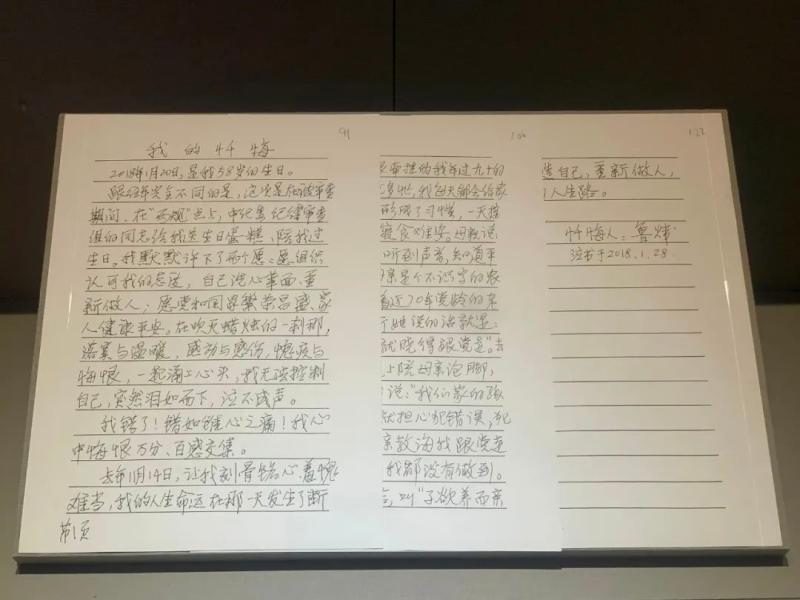 91
我的忏悔
2018年1月20日，是我58岁的生日。
跟往年完全不同的是，这次是在被审查
期间、在“两规”点上，中纪委纪律审查
组的同志给我送生日蛋糕，陪我过
生日。我默默许下了两个愿：愿组织
认可我的态度，自己洗心革面、重
新做人；愿党和国家繁荣昌盛、家
人健康平安。在吹灭蜡烛的一刹那，
落寞与温暖，感动与感伤，愧疚与
悔恨，一起涌上心头，我无法控制
自己，突然泪如雨下，泣不成声。
我错了！错如锥心之痛！我心
中悔恨万分、百感交集。
去年11月14日，让我刻骨铭心、羞愧
难当，我的人生命运在那一天发生了断
第1页
106
我年过九十的
我每天都会给家
形成了习惯，一天接
寝食难安。母亲说
听到声音，知道平
亲是个不识字的农
着近70年党龄的亲
她说的话就是：
就晓得跟党走”。去
上陪母亲泡脚，
说：“我们家的孩
就担心犯错误，死
亲教诲我跟党走
我都没有做到。
言，叫“子欲养而亲
122
造自己，重新做人，
人生路。
忏悔人：鲁炜
泣书于2018.1.28.